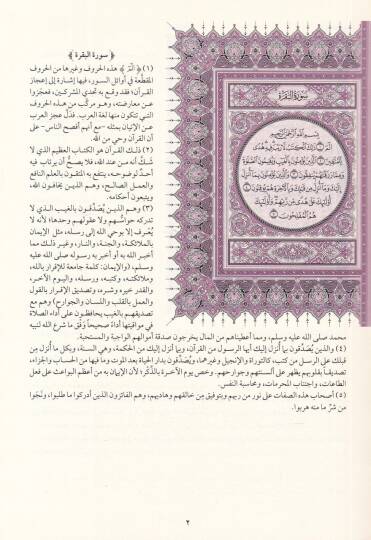 ﴿ سورة البقرة ﴾
(١) ﴿الٓمٓ﴾ هذه الحروف وغيرها من الحروف
المقطَّعة في أوائل السور، فيها إشارة إلى إعجاز
القرآن؛ فقد وقع به تحدي المشركين، فعجَزوا
عن معارضته، وهو مركَّب من هذه الحروف
التي تتكون منها لغة العرب. فدلَّ عجز العرب
عن الإتيان بمثله -مع أنهم أفصح الناس- على
أن القرآن وحي من الله.
(٢) ذلك القرآن هو الكتاب العظيم الذي لا
شكَّ أنه من عند الله، فلا يصحُّ أن يرتاب فيه
أحد لوضوحه، ينتفع به المتقون بالعلم النافع
والعمل الصالح، وهم الذين يخافون الله،
ويتبعون أحكامه.
(٣) وهم الذين يُصَدِّقون بالغيب الذي لا
تدركه حواسُّهم ولا عقولهم وحدها؛ لأنه لا
يُعْرف إلا بوحي الله إلى رسله، مثل الإيمان
بالملائكة، والجنة، والنار، وغير ذلك مما
أخبر الله به أو أخبر به رسوله صلى الله عليه
وسلم، (والإيمان: كلمة جامعة للإقرار بالله،
وملائكته، وكتبه، ورسله، واليوم الآخر،
والقدر خيره وشره، وتصديق الإقرار بالقول
والعمل بالقلب واللسان والجوارح) وهم مع
تصديقهم بالغيب يحافظون على أداء الصلاة
في مواقيتها أداءً صحيحاً وَفْق ما شرع الله لنبيه
محمد صلى الله عليه وسلم، ومما أعطيناهم من المال يخرجون صدقة أموالهم الواجبة والمستحبة.
(٤) والذين يُصَدِّقون بما أُنزل إليك أيها الرسول من القرآن، وبما أنزل إليك من الحكمة، وهي السنة، وبكل ما أُنزل مِن
قبلك على الرسل من كتب، كالتوراة والإنجيل وغيرهما، ويُصَدِّقون بدار الحياة بعد الموت وما فيها من الحساب والجزاء،
تصديقاً بقلوبهم يظهر على ألسنتهم وجوارحهم. وخص يوم الآخرة بالذِّكر؛ لأن الإيمان به من أعظم البواعث على فعل
الطاعات، واجتناب المحرمات، ومحاسبة النفس.
(٥) أصحاب هذه الصفات على نور من ربهم وبتوفيق مِن خالقهم وهاديهم، وهم الفائزون الذين أدركوا ما طلبوا، ونَجَوا
من شرِّ ما منه هربوا.
سورة البقرة
بسم الله الرحمن الرحيم
الٓمٓ ۝ ذَٰلِكَ الْكِتَابُ لَا رَيْبَ فِيهِ هُدًى
لِّلْمُتَّقِينَ ۝ الَّذِينَ يُؤْمِنُونَ بِالْغَيْبِ وَيُقِيمُونَ الصَّلَاةَ
وَمِمَّا رَزَقْنَاهُمْ يُنفِقُونَ ۝ وَالَّذِينَ يُؤْمِنُونَ بِمَا أُنزِلَ
إِلَيْكَ وَمَا أُنزِلَ مِن قَبْلِكَ وَبِالْآخِرَةِ هُمْ يُوقِنُونَ ۝
أُولَٰئِكَ عَلَىٰ هُدًى مِّن رَّبِّهِمْ وَأُولَٰئِكَ
هُمُ الْمُفْلِحُونَ ۝
٢